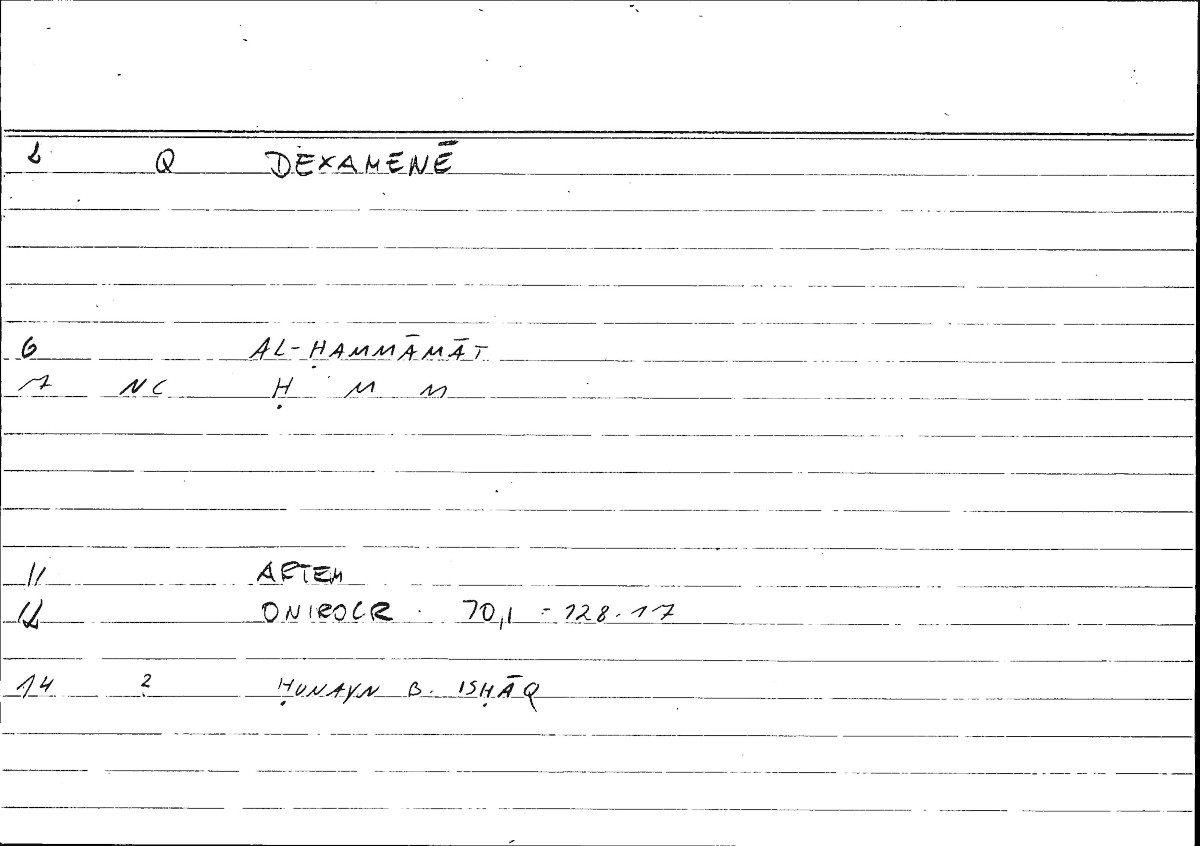 1 Q DEXAMENĒ
6 AL-ḤAMMĀMĀT
7 NC Ḥ M M
11 ARTEM
12 ONIROCR. 70,1 = 128.17
14 2 ḤUNAYN B. ISḤĀQ